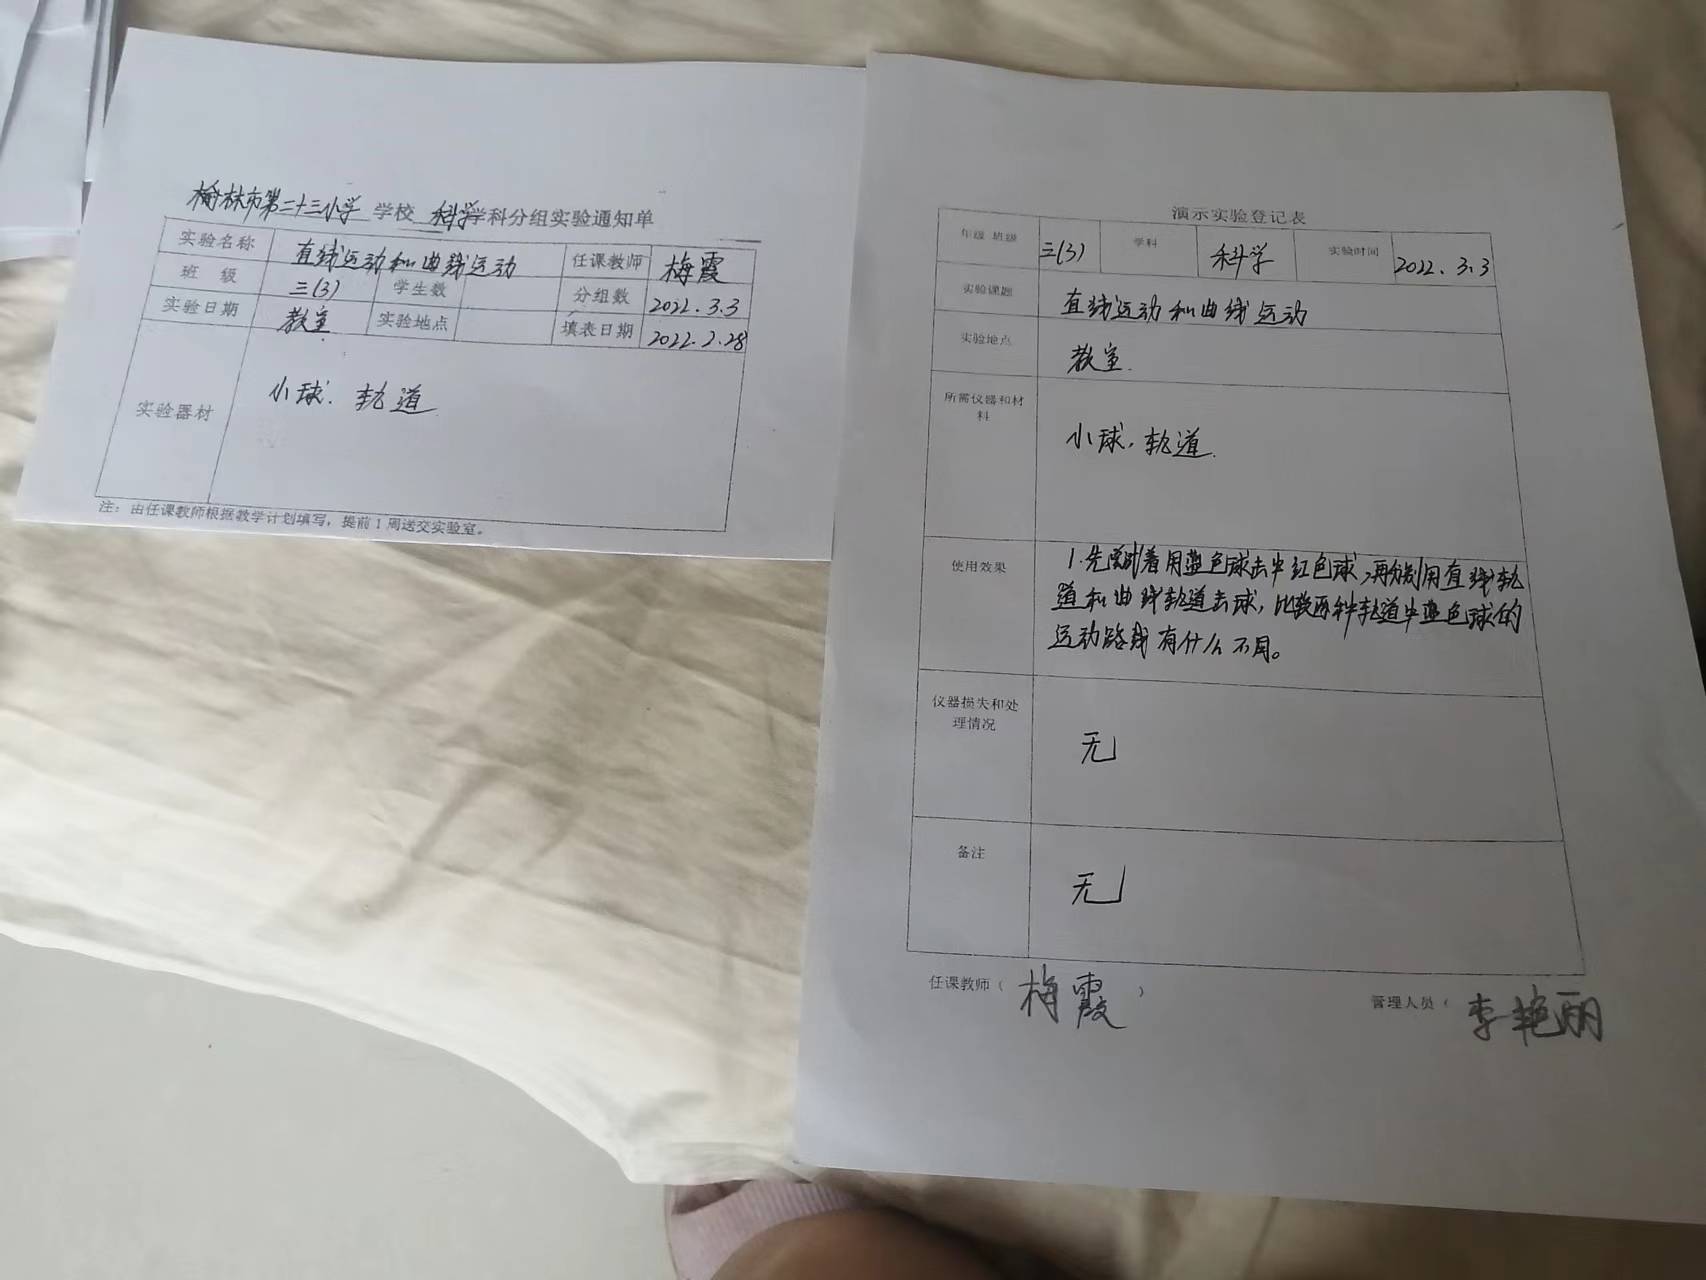 榆林市第二十三小学 学校 科学学科分组实验通知单
实验名称 直线运动和曲线运动 任课教师 梅霞
班 级 三(3) 学生数 分组数 2022.3.3
实验日期 教室 实验地点 填表日期 2022.2.28
实验器材 小球、轨道
注：由任课教师根据教学计划填写，提前1周送交实验室。
演示实验登记表
年级 班级 三(3) 学科 科学 实验时间 2022.3.3
实验课题 直线运动和曲线运动
实验地点 教室.
所需仪器和材
料
小球，轨道.
使用效果 1.先试着用蓝色球击中红色球,再分别用直线轨
道和曲线轨道击球，比较两种轨道中蓝色球的
运动路线有什么不同。
仪器损失和处
理情况
无
备注
无
任课教师（梅霞）
管理人员（李艳丽